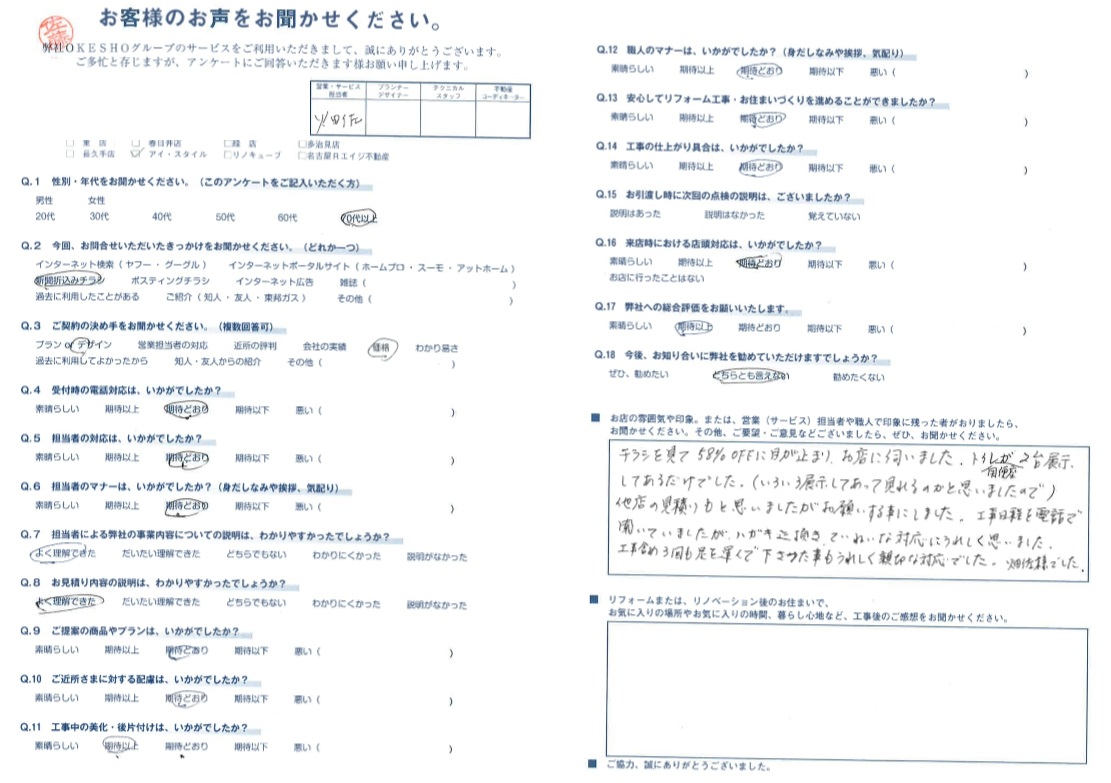 お客様のお声をお聞かせください。
佐藤
弊社OKESHOグループのサービスをご利用いただきまして、誠にありがとうございます。
ご多忙と存じますが、アンケートにご回答いただきます様お願い申し上げます。
営業・サービス担当者 プランナーデザイナー テクニカルスタッフ 不動産コーディネーター
□ 東 店 □ 春日井店 □緑 店 □多治見店
□ 長久手店 ☑ アイ・スタイル □リノキューブ □名古屋Rエイジ不動産
Q.1 性別・年代をお聞かせください。（このアンケートをご記入いただく方）
男性 女性
20代 30代 40代 50代 60代 70代以上
Q.2 今回、お問合せいただいたきっかけをお聞かせください。（どれか一つ）
インターネット検索（ヤフー・グーグル） インターネットポータルサイト（ホームプロ・スーモ・アットホーム）
新聞折込みチラシ ポスティングチラシ インターネット広告 雑誌（ ）
過去に利用したことがある ご紹介（知人・友人・東邦ガス） その他（ ）
Q.3 ご契約の決め手をお聞かせください。（複数回答可）
プラン・デザイン 営業担当者の対応 近所の評判 会社の実績 価格 わかり易さ
過去に利用してよかったから 知人・友人からの紹介 その他（ ）
Q.4 受付時の電話対応は、いかがでしたか？
素晴らしい 期待以上 期待どおり 期待以下 悪い（ ）
Q.5 担当者の対応は、いかがでしたか？
素晴らしい 期待以上 期待どおり 期待以下 悪い（ ）
Q.6 担当者のマナーは、いかがでしたか？（身だしなみや挨拶、気配り）
素晴らしい 期待以上 期待どおり 期待以下 悪い（ ）
Q.7 担当者による弊社の事業内容についての説明は、わかりやすかったでしょうか？
よく理解できた だいたい理解できた どちらでもない わかりにくかった 説明がなかった
Q.8 お見積り内容の説明は、わかりやすかったでしょうか？
よく理解できた だいたい理解できた どちらでもない わかりにくかった 説明がなかった
Q.9 ご提案の商品やプランは、いかがでしたか？
素晴らしい 期待以上 期待どおり 期待以下 悪い（ ）
Q.10 ご近所さまに対する配慮は、いかがでしたか？
素晴らしい 期待以上 期待どおり 期待以下 悪い（ ）
Q.11 工事中の美化・後片付けは、いかがでしたか？
素晴らしい 期待以上 期待どおり 期待以下 悪い（ ）
Q.12 職人のマナーは、いかがでしたか？（身だしなみや挨拶、気配り）
素晴らしい 期待以上 期待どおり 期待以下 悪い（ ）
Q.13 安心してリフォーム工事・お住まいづくりを進めることができましたか？
素晴らしい 期待以上 期待どおり 期待以下 悪い（ ）
Q.14 工事の仕上がり具合は、いかがでしたか？
素晴らしい 期待以上 期待どおり 期待以下 悪い（ ）
Q.15 お引渡し時に次回の点検の説明は、ございましたか？
説明はあった 説明はなかった 覚えていない
Q.16 来店時における店頭対応は、いかがでしたか？
素晴らしい 期待以上 期待どおり 期待以下 悪い（ ）
お店に行ったことはない
Q.17 弊社への総合評価をお願いいたします。
素晴らしい 期待以上 期待どおり 期待以下 悪い（ ）
Q.18 今後、お知り合いに弊社を勧めていただけますでしょうか？
ぜひ、勧めたい どちらとも言えない 勧めたくない
■ お店の雰囲気や印象。または、営業（サービス）担当者や職人で印象に残った者がおりましたら、
お聞かせください。その他、ご要望・ご意見などございましたら、ぜひ、お聞かせください。
チラシを見て58%OFFに目が止まり、お店に伺いました。トイレが2台展示
してあるだけでした。（いろいろ展示してあって見れるのかと思いましたので）
他店の見積りカと思いましたがお願いする事にしました。工事日程を電話で
聞いていましたが、ハガキ迄頂き、ていねいな対応にうれしく思いました。
工事含め3回も足を運んで下さった事もうれしく親切な対応でした。畑佐様でした。
■ リフォームまたは、リノベーション後のお住まいで、
お気に入りの場所やお気に入りの時間、暮らし心地など、工事後のご感想をお聞かせください。
■ ご協力、誠にありがとうございました。